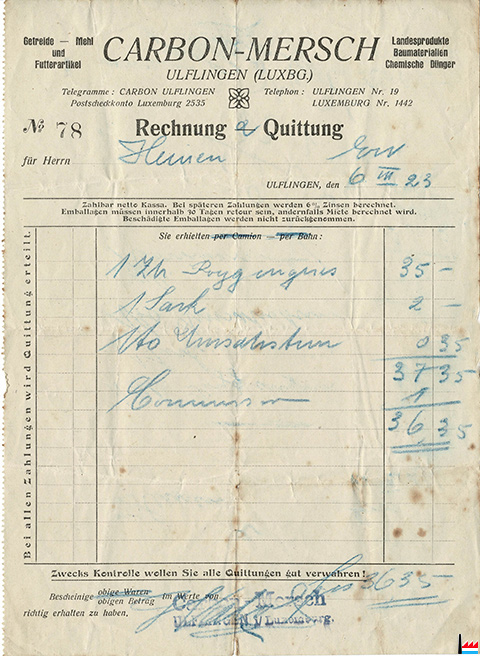 Getreide — Mehl
und
Futterartikel
CARBON-MERSCH
Landesprodukte
Baumaterialien
Chemische Dünger
ULFLINGEN (LUXBG.)
Telegramme : CARBON ULFLINGEN
Postscheckkonto Luxemburg 2535
Telephon : ULFLINGEN Nr. 19
LUXEMBURG Nr. 1442
№ 78
Rechnung & Quittung
für Herrn Heinen
ULFLINGEN, den 6 VIII 23
Zahlbar netto Kassa. Bei späteren Zahlungen werden 6% Zinsen berechnet.
Emballagen müssen innerhalb 30 Tagen retour sein, andernfalls Miete berechnet wird.
Beschädigte Emballagen werden nicht zurückgenommen.
Sie erhielten per Camion — per Bahn :
1 35 –
1 Sack 2 –
0 35
37 35
1
36 35
Bei allen Zahlungen wird Quittung erteilt.
Zwecks Kontrolle wollen Sie alle Quittungen gut verwahren!
Bescheinige obige Waren im Werte von
obigen Betrag
3635
richtig erhalten zu haben,
Mersch
ULFLINGEN / Luxemburg.